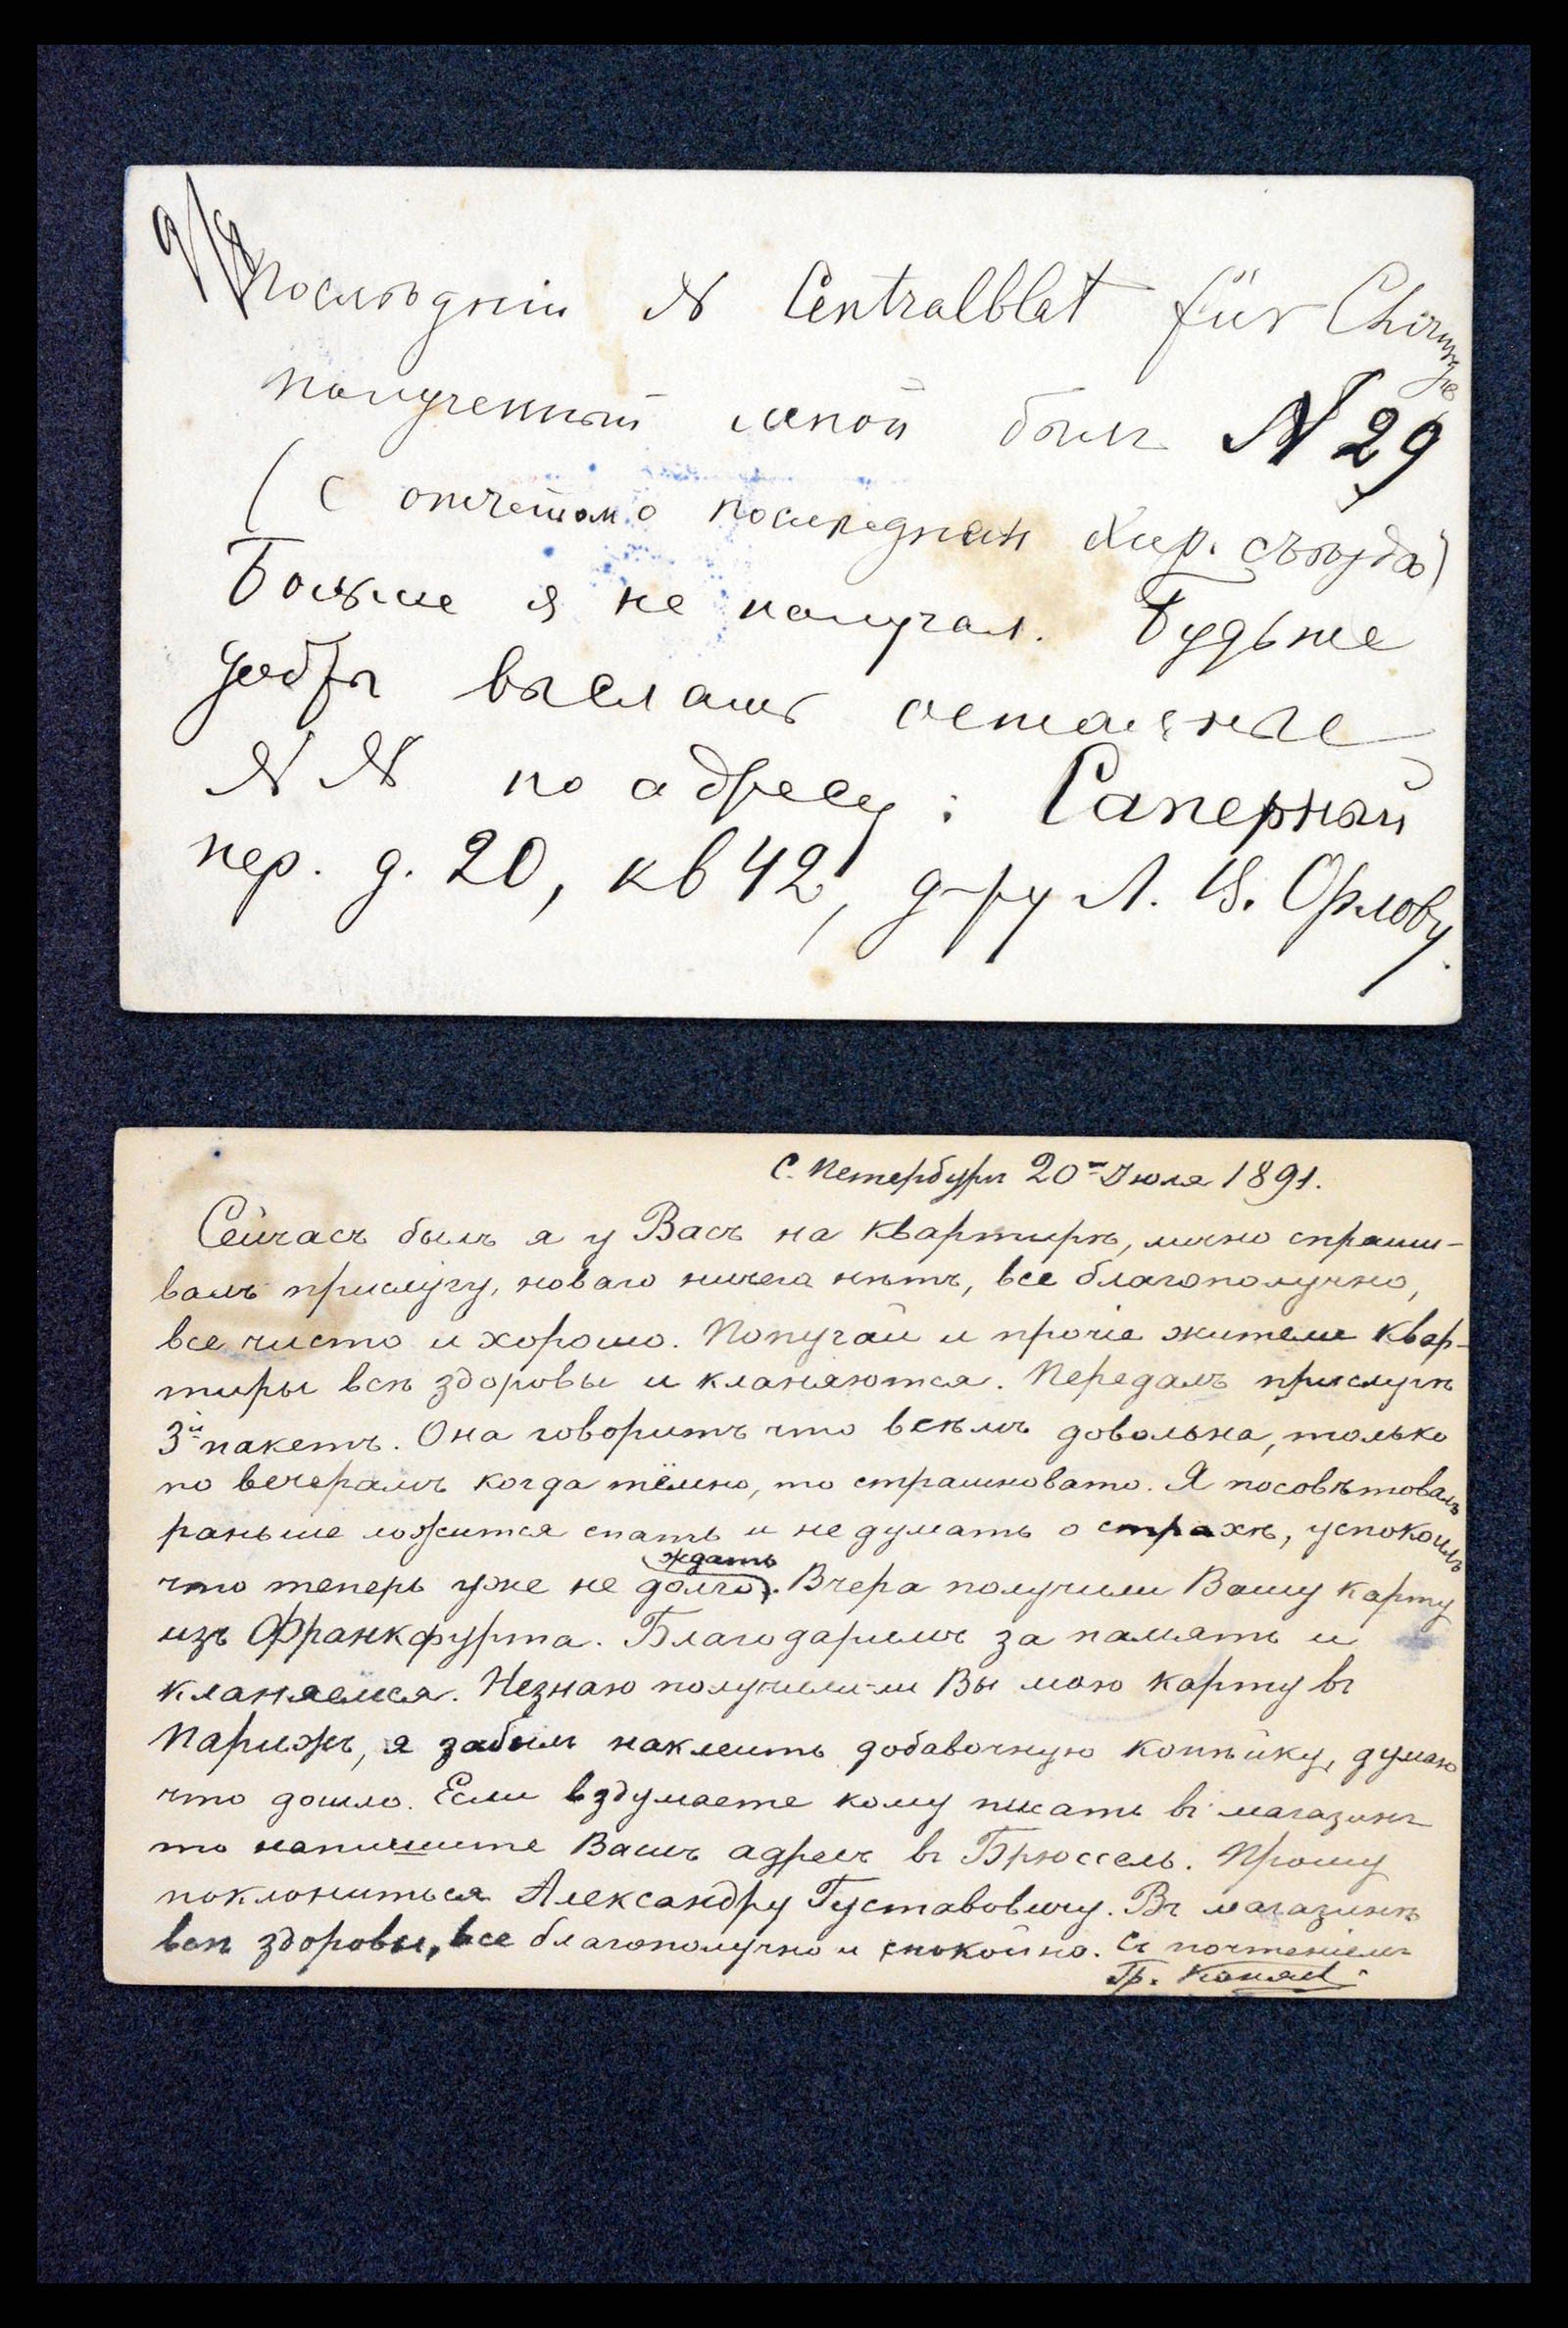 Послѣдній № Centralblat für Chirurgie
полученный мной был № 29
(С отчетом о последнем Хир. съѣзде)
Больше я не получал. Будьте
добры выслать остальные
№№ по адресу: Саперный
пер. д. 20, кв 42, д-ру Л. В. Орлову.
С. Петербургъ 20го Июля 1891.
Сейчасъ былъ я у Васъ на квартирѣ, лично спраши-
валъ прислугу, новаго ничего нѣтъ, все благополучно,
все чисто и хорошо. Попугай и прочіе жители квар-
тиры всѣ здоровы и кланяются. Передалъ прислугѣ
3й пакетъ. Она говоритъ что всѣмъ довольна, только
по вечерамъ когда тёмно, то страшновато. Я посовѣтовалъ
раньше ложится спать и не думать о страхѣ, успокоилъ
что теперь уже не долго ждать. Вчера получили Вашу карту
изъ Франкфурта. Благодаримъ за память и
кланяемся. Незнаю получили-ли Вы мою карту въ
Парижъ, я забылъ наклеить добавочную копѣйку, думаю
что дошло. Если вздумаете кому писать въ магазинъ
то напишите Вашъ адресъ въ Брюссель. Прошу
поклониться Александру Густавовичу. Въ магазинѣ
всѣ здоровы, все благополучно и спокойно. Съ почтеніемъ
Гр.